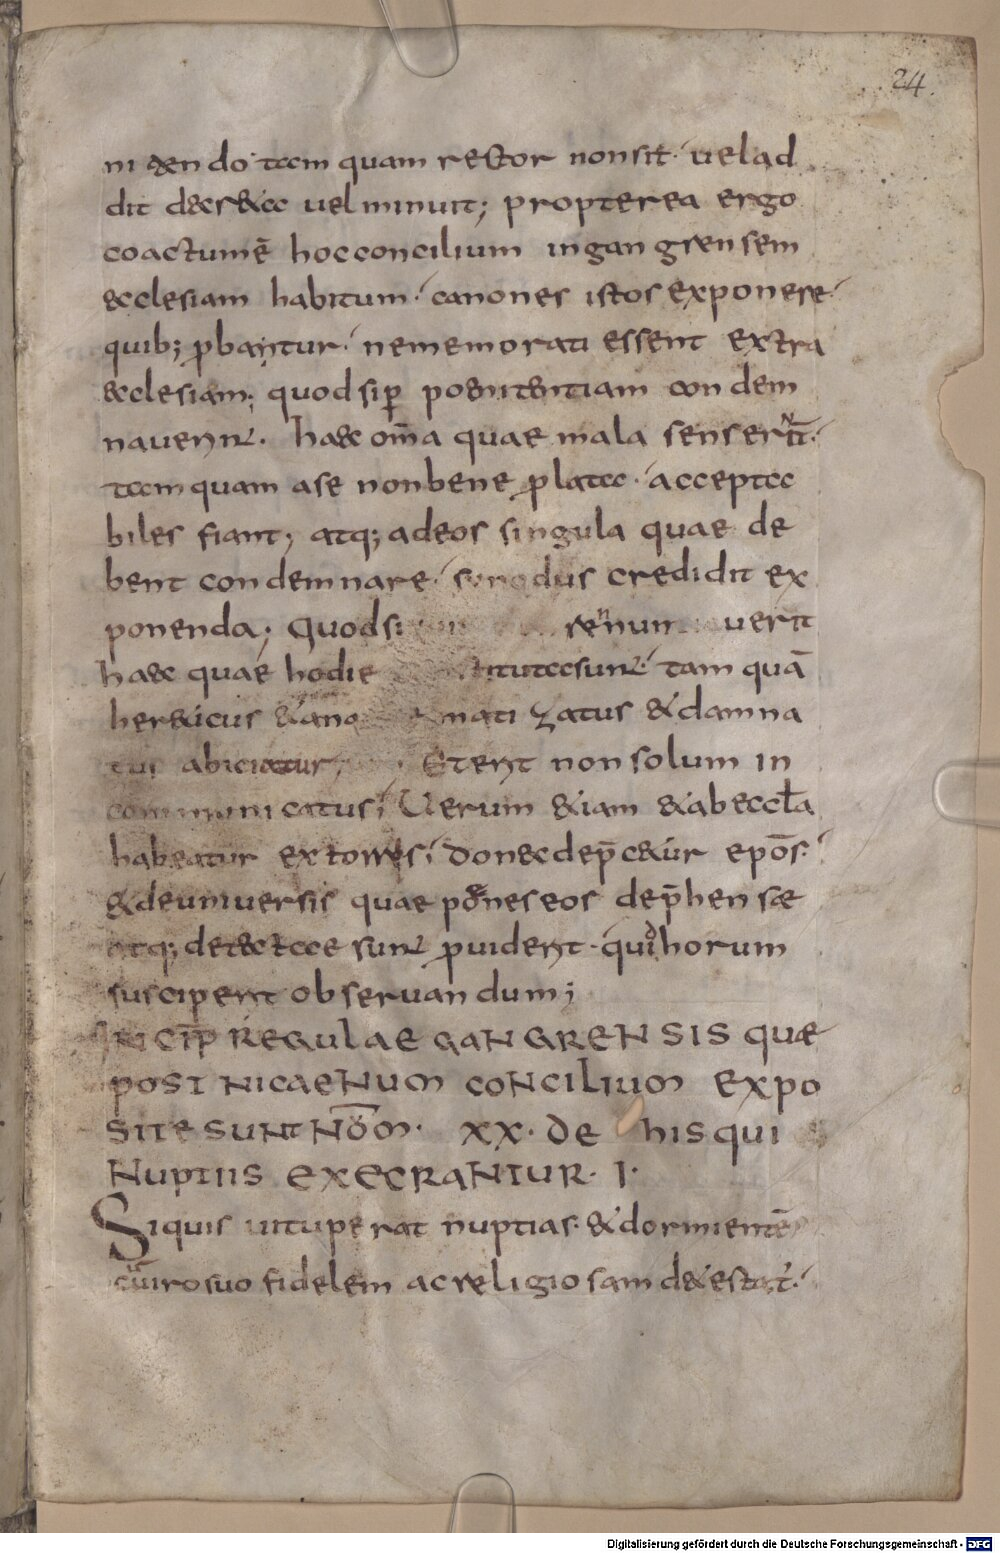 24.
ni&endo tamquam rector non sit· uel ad
dit decr&a uel minuit; propterea ergo
coactum ē hoc concilium in gangrensem
ecclesiam habitum· canones istos exponere·
quib; ꝓbantur· ne memorati essent extra
ecclesiam; quod si ꝑ poenitentiam condem
nauerint· haec om̄a quae mala senserunt·
tamquam a se non bene ꝓlata· accepta
biles fiant; atq; ad eos singula quae de
bent condemnare· synodus credidit ex
ponenda; Quod si renun uerit
haec quae hodie titutasunt· tam quā
her&icus &ana matizatus &damna
tus abiciatur; Et erit non solum in
communicatus; Uerum &iam &ab eccl̄a
habeatur extorris; donec dep̄c&ur ep̄os·
& de uniuersis quae penes eos dep̄hensae
atq; detectae sunt ꝓuiderit· quid horum
susciperit obseruandum;
INCIP̄ REGULAE GANGRENSIS QUAE
POST NICAENUM CONCILIUM EXPO
SITE SUNT NŌM· XX· DE HIS QUI
NUPTIIS EXECRANTUR· I·
Si quis uituperat nuptias· &dormientē
cū uiro suo fidelem ac religiosam d&estat̄·
Digitalisierung gefördert durch die Deutsche Forschungsgemeinschaft - DFG